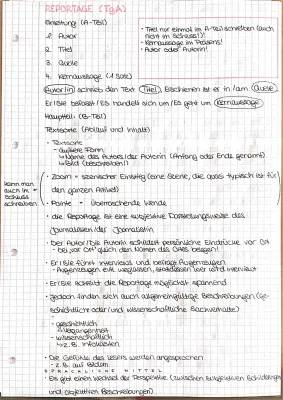 REPORTAGE (TGA)
Einleitung (A-Teil)
1. Autor
2. Titel
3. Quelle
4. Kernaussage (1 Satz)
• Titel nur einmal im A-Teil schreiben (auch
nicht im Schluss!)!
• Kernaussage im Präsens!
• Autor oder Autorin!
Autor/in schrieb den Text Titel. Erschienen ist er in/am Quelle
Er/Sie befasst/Es handelt sich um/Es geht um Kernaussage
Hauptteil (B-Teil)
Textsorte (Ablauf und Inhalt)
• Textsorte
- äußere Form
↳ Name des Autors/der Autorin (Anfang oder Ende genannt)
↳ Bild (beschreiben!)
kann man
auch im
Schluss
schreiben
• Zoom = szenischer Einstieg (eine Szene, die quasi typisch ist für
den ganzen Artikel)
• Pointe = überraschende Wende
• die Reportage ist eine subjektive Darstellungsweise des
Journalisten/der Journalistin
• Der Autor/Die Autorin schildert persönliche Eindrücke vor Ort
- bei "vor Ort" gleich den Namen des Ortes
• Er/Sie führt Interviews und befragt Augenzeugen
- Augenzeugen evtl. weglassen, stattdessen wer wird interviewt
• Er/Sie schreibt die Reportage möglichst spannend
• jedoch finden sich auch allgemeingültige Beschreibungen (ge-
schichtlich oder/und wissenschaftliche Sachverhalte)
- geschichtlich
↳ Vergangenheit
- wissenschaftlich
↳ z.B. Infowissen
• Die Gefühle des Lesers werden angesprochen
- z.B. auf Bildern
SPRACHLICHE MITTEL
• Es gibt einen Wechsel der Perspektive (zwischen subjektiven Schilderungen
und objektiven Beschreibungen)